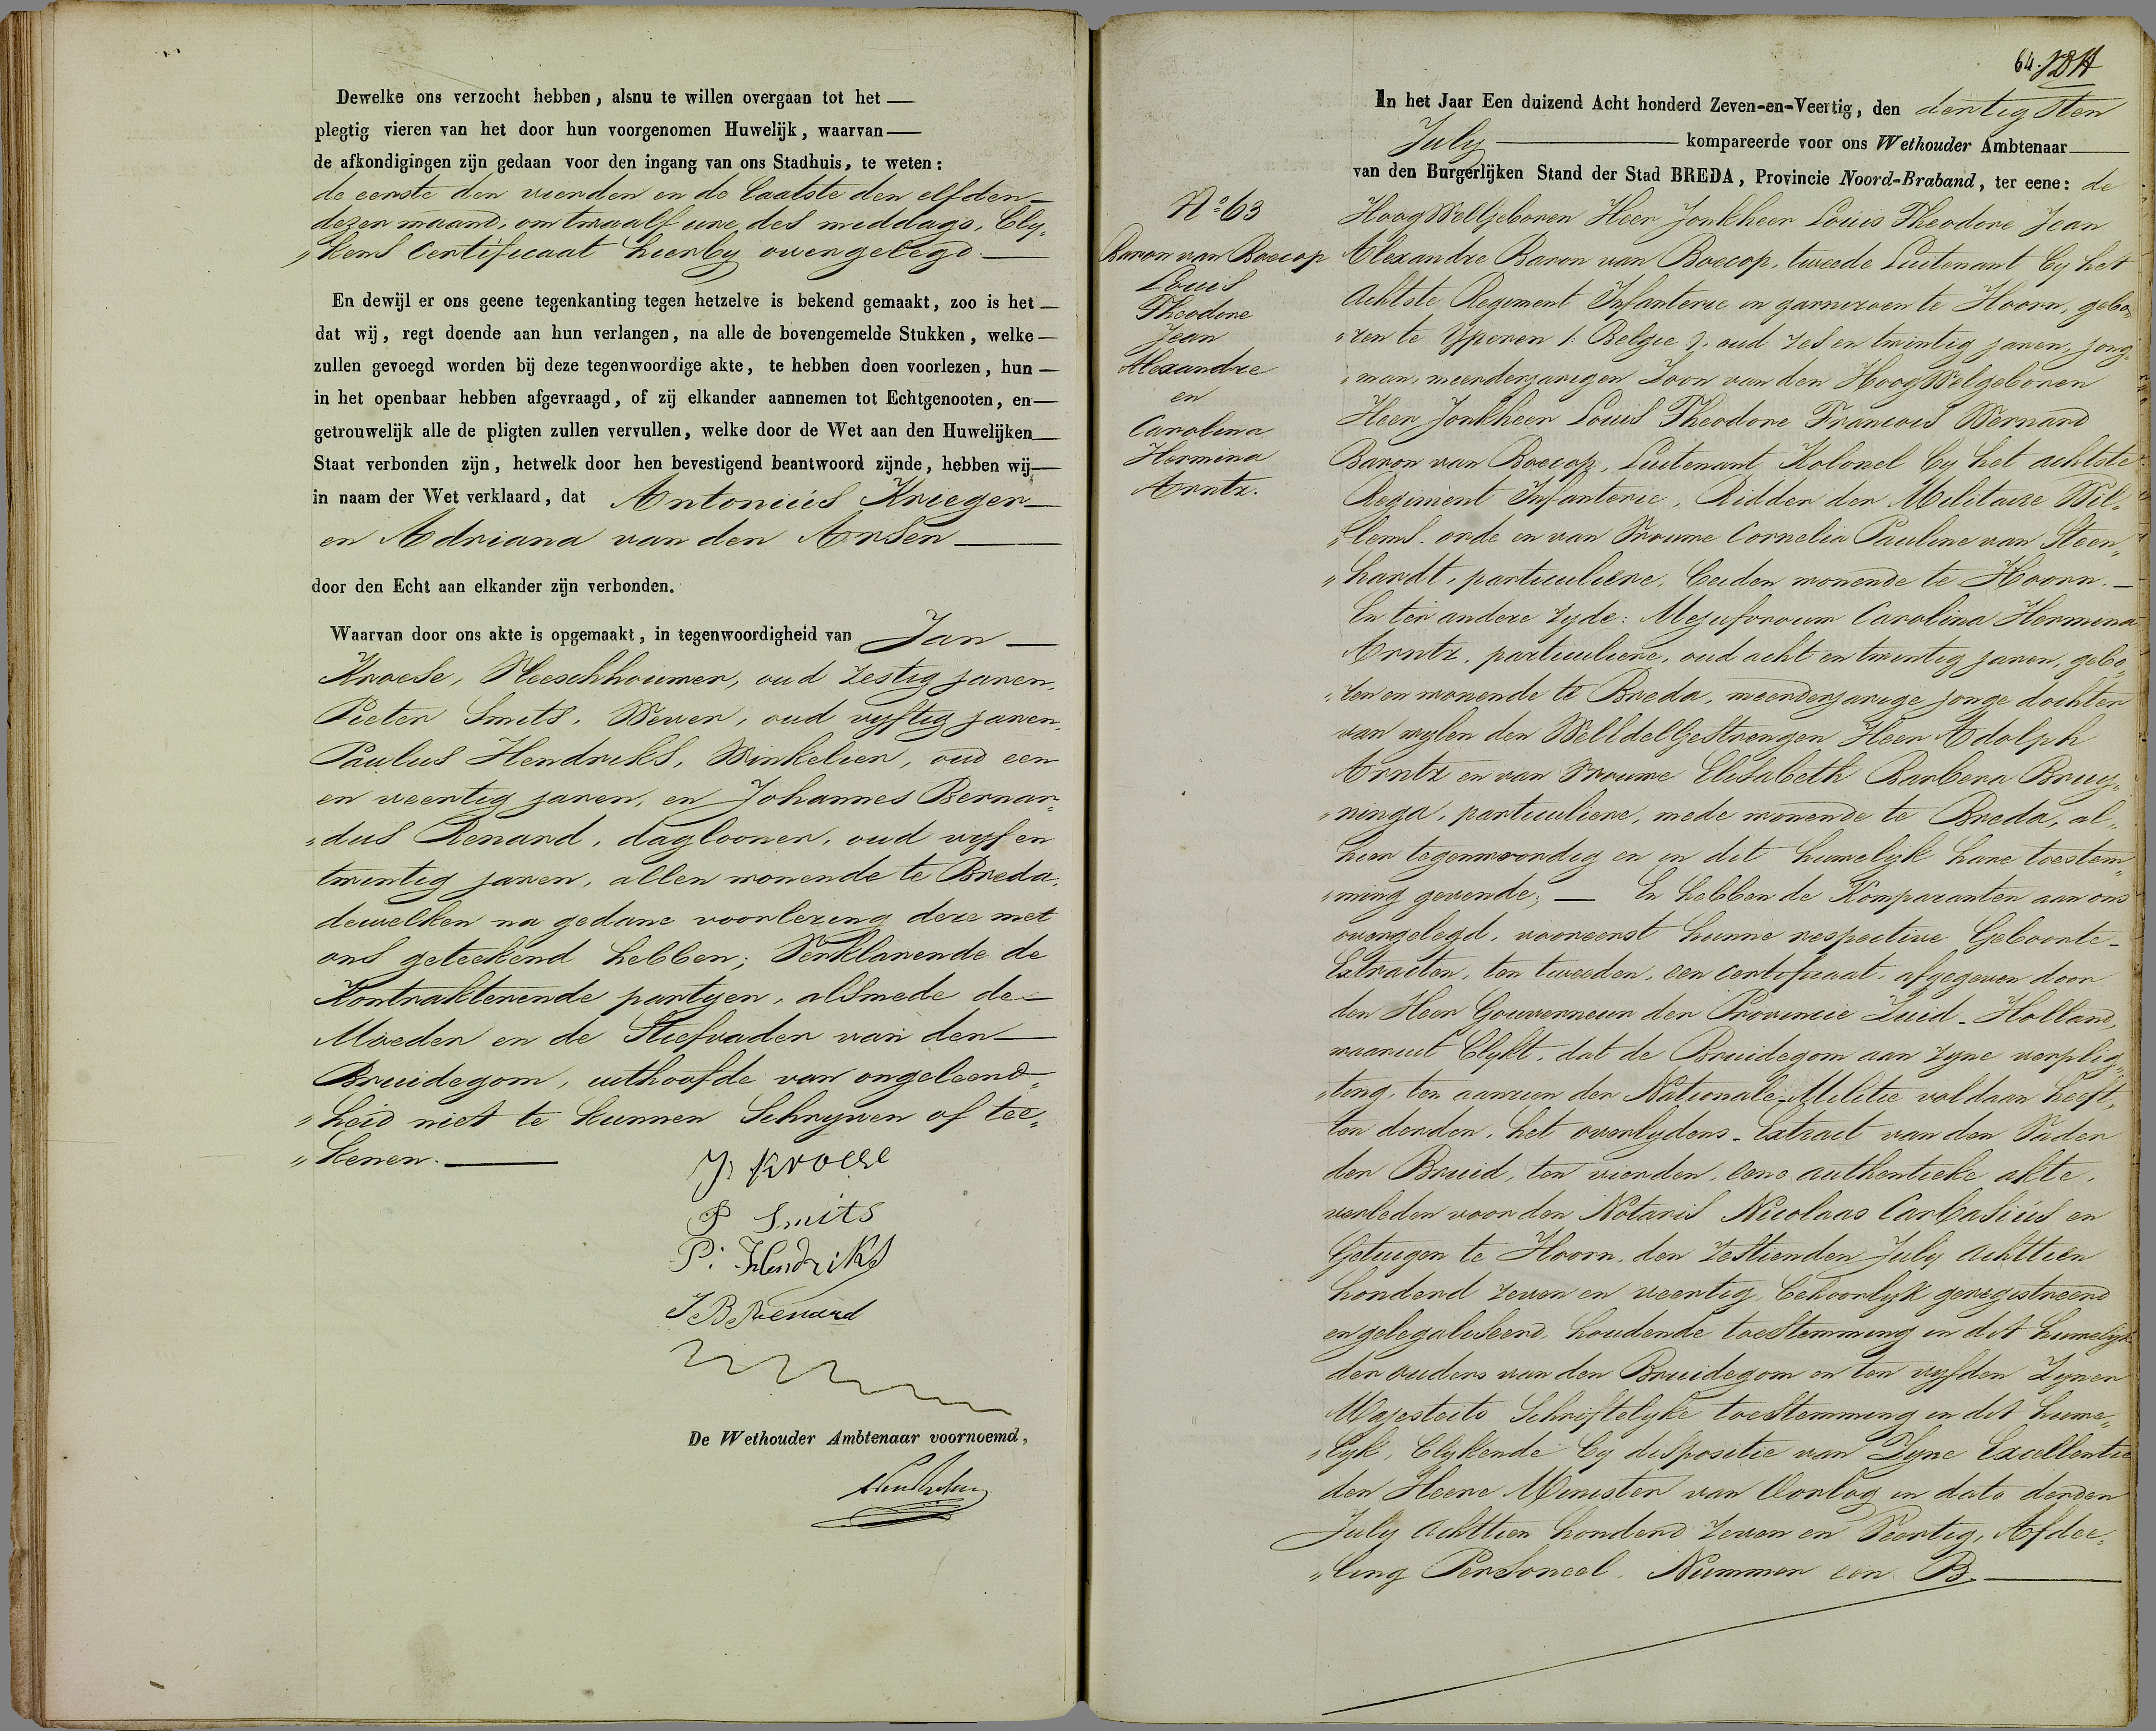 Dewelke ons verzocht hebben, alsnu te willen overgaan tot het
plegtig vieren van het door hun voorgenomen Huwelijk, waarvan
de afkondigingen zijn gedaan voor den ingang van ons Stadhuis, te weten:
de eerste den vierden en de laatste den elfden
dezer maand, om twaalf ure des middags, bly-
„kens Certificaat hierby overgelegd.
En dewijl er ons geene tegenkanting tegen hetzelve is bekend gemaakt, zoo is het
dat wij, regt doende aan hun verlangen, na alle de bovengemelde Stukken, welke
zullen gevoegd worden bij deze tegenwoordige akte, te hebben doen voorlezen, hun
in het openbaar hebben afgevraagd, of zij elkander aannemen tot Echtgenooten, en
getrouwelijk alle de pligten zullen vervullen, welke door de Wet aan den Huwelijken
Staat verbonden zijn, hetwelk door hen bevestigend beantwoord zijnde, hebben wij
in naam der Wet verklaard, dat Antonius Krieger
en Adriana van den Arsen
door den Echt aan elkander zijn verbonden.
Waarvan door ons akte is opgemaakt, in tegenwoordigheid van Jan
Kroese, Vleeschhouwer, oud zestig jaren,
Pieter Smits, Wever, oud vyftig jaren,
Paulus Hendriks, Winkelier, oud een
en veertig jaren, en Johannes Bernar-
„dus Renard, daglooner, oud vyf en
twintig jaren, allen wonende te Breda,
dewelken na gedane voorlezing deze met
ons geteekend hebben; Verklarende de
Kontrakterende partyen, alsmede de
Moeder en de Stiefvader van den
Bruidegom, uithoofde van ongeleerd-
„heid niet te kunnen Schryven of tee-
„kenen.
J. Kroese
P Smits
P: Hendriks
J B Renard
De Wethouder Ambtenaar voornoemd,
64.
In het Jaar Een duizend Acht honderd Zeven-en-Veertig, den dertigsten
July kompareerde voor ons Wethouder Ambtenaar
van den Burgerlijken Stand der Stad BREDA, Provincie Noord-Braband, ter eene: de
No 63
Baron van Boecop
Louis
Theodore
Jean
Alexandre
en
Carolina
Hermina
Arntz.
HoogWelGeboren Heer Jonkheer Louis Theodore Jean
Alexandre Baron van Boecop, tweede Luitenant by het
Achtste Regiment Infanterie in garnizoen te Hoorn, gebo-
„ren te Yperen /: Belgie :/ oud zes en twintig jaren, jong-
„man, meerderjarigen Zoon van den HoogWelgeboren
Heer Jonkheer Louis Theodore Francois Wernard
Baron van Boecop, Luitenant Kolonel by het achtste
Regiment Infanterie, Ridder der Militaire Wil-
„lems. orde en van Vrouwe Cornelia Pauline van Steen-
„hardt, particuliere, beiden wonende te Hoorn.
En ter andere zyde: Mejufvrouw Carolina Hermina
Arntz, particuliere, oud acht en twintig jaren, gebo-
„ren en wonende te Breda, meerderjarige jonge dochter
van wylen den WelEdelGestrengen Heer Adolph
Arntz en van Vrouwe Elisabeth Barbera Bruy-
„ninga, particuliere, mede wonende te Breda, al-
hier tegenwoordig en in dit huwelyk hare toestem-
„ming gevende; En hebben de Komparanten aan ons
overgelegd, vooreerst hunne respective Geboorte-
Extracten, ten tweeden, een certificaat, afgegeven door
den Heer Gouverneur der Provincie Zuid-Holland,
waaruit blykt, dat de Bruidegom aan zyne verplig-
„ting, ten aanzien der Nationale Militie voldaan heeft,
ten derden, het overlydens-Extract van den Vader
der Bruid, ten vierden, eene authentieke akte,
verleden voor den Notaris Nicolaas Carbasius en
Getuigen te Hoorn, den zestienden July achttien
honderd zeven en veertig, behoorlyk geregistreerd
en gelegaliseerd, houdende toestemming in dit huwelyk
der ouders van den Bruidegom en ten vyfden Zyner
Majesteits Schriftelyke toestemming in dit huwe-
„lyk, blykende by dispositie van Zyne Excellentie
den Heere Minister van Oorlog in dato derden
July achttien honderd zeven en Veertig, Afdee-
„ling Personeel. Nummer een B.